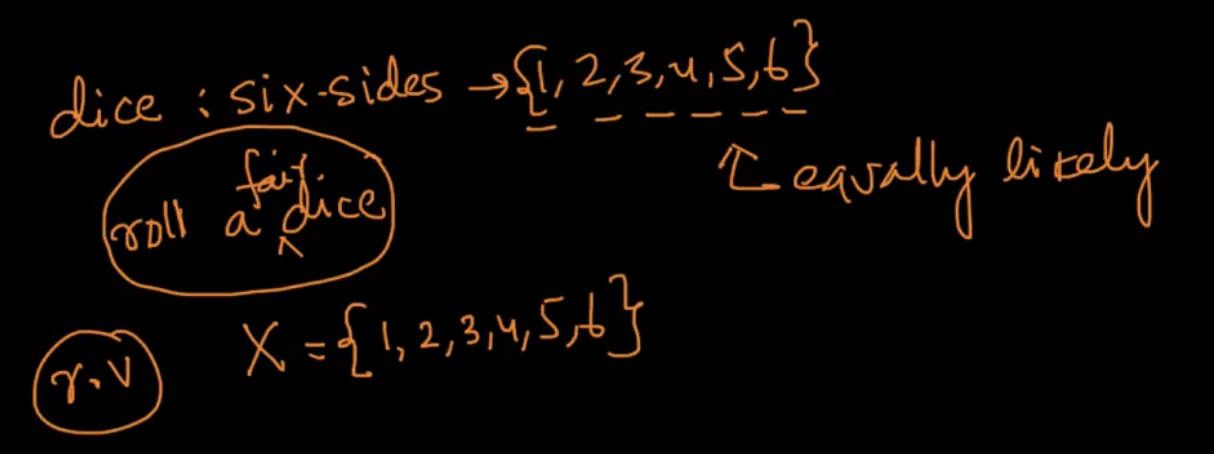 dice : six-sides → {1, 2, 3, 4, 5, 6}
equally likely
roll a fair dice
X = {1, 2, 3, 4, 5, 6}
r.v